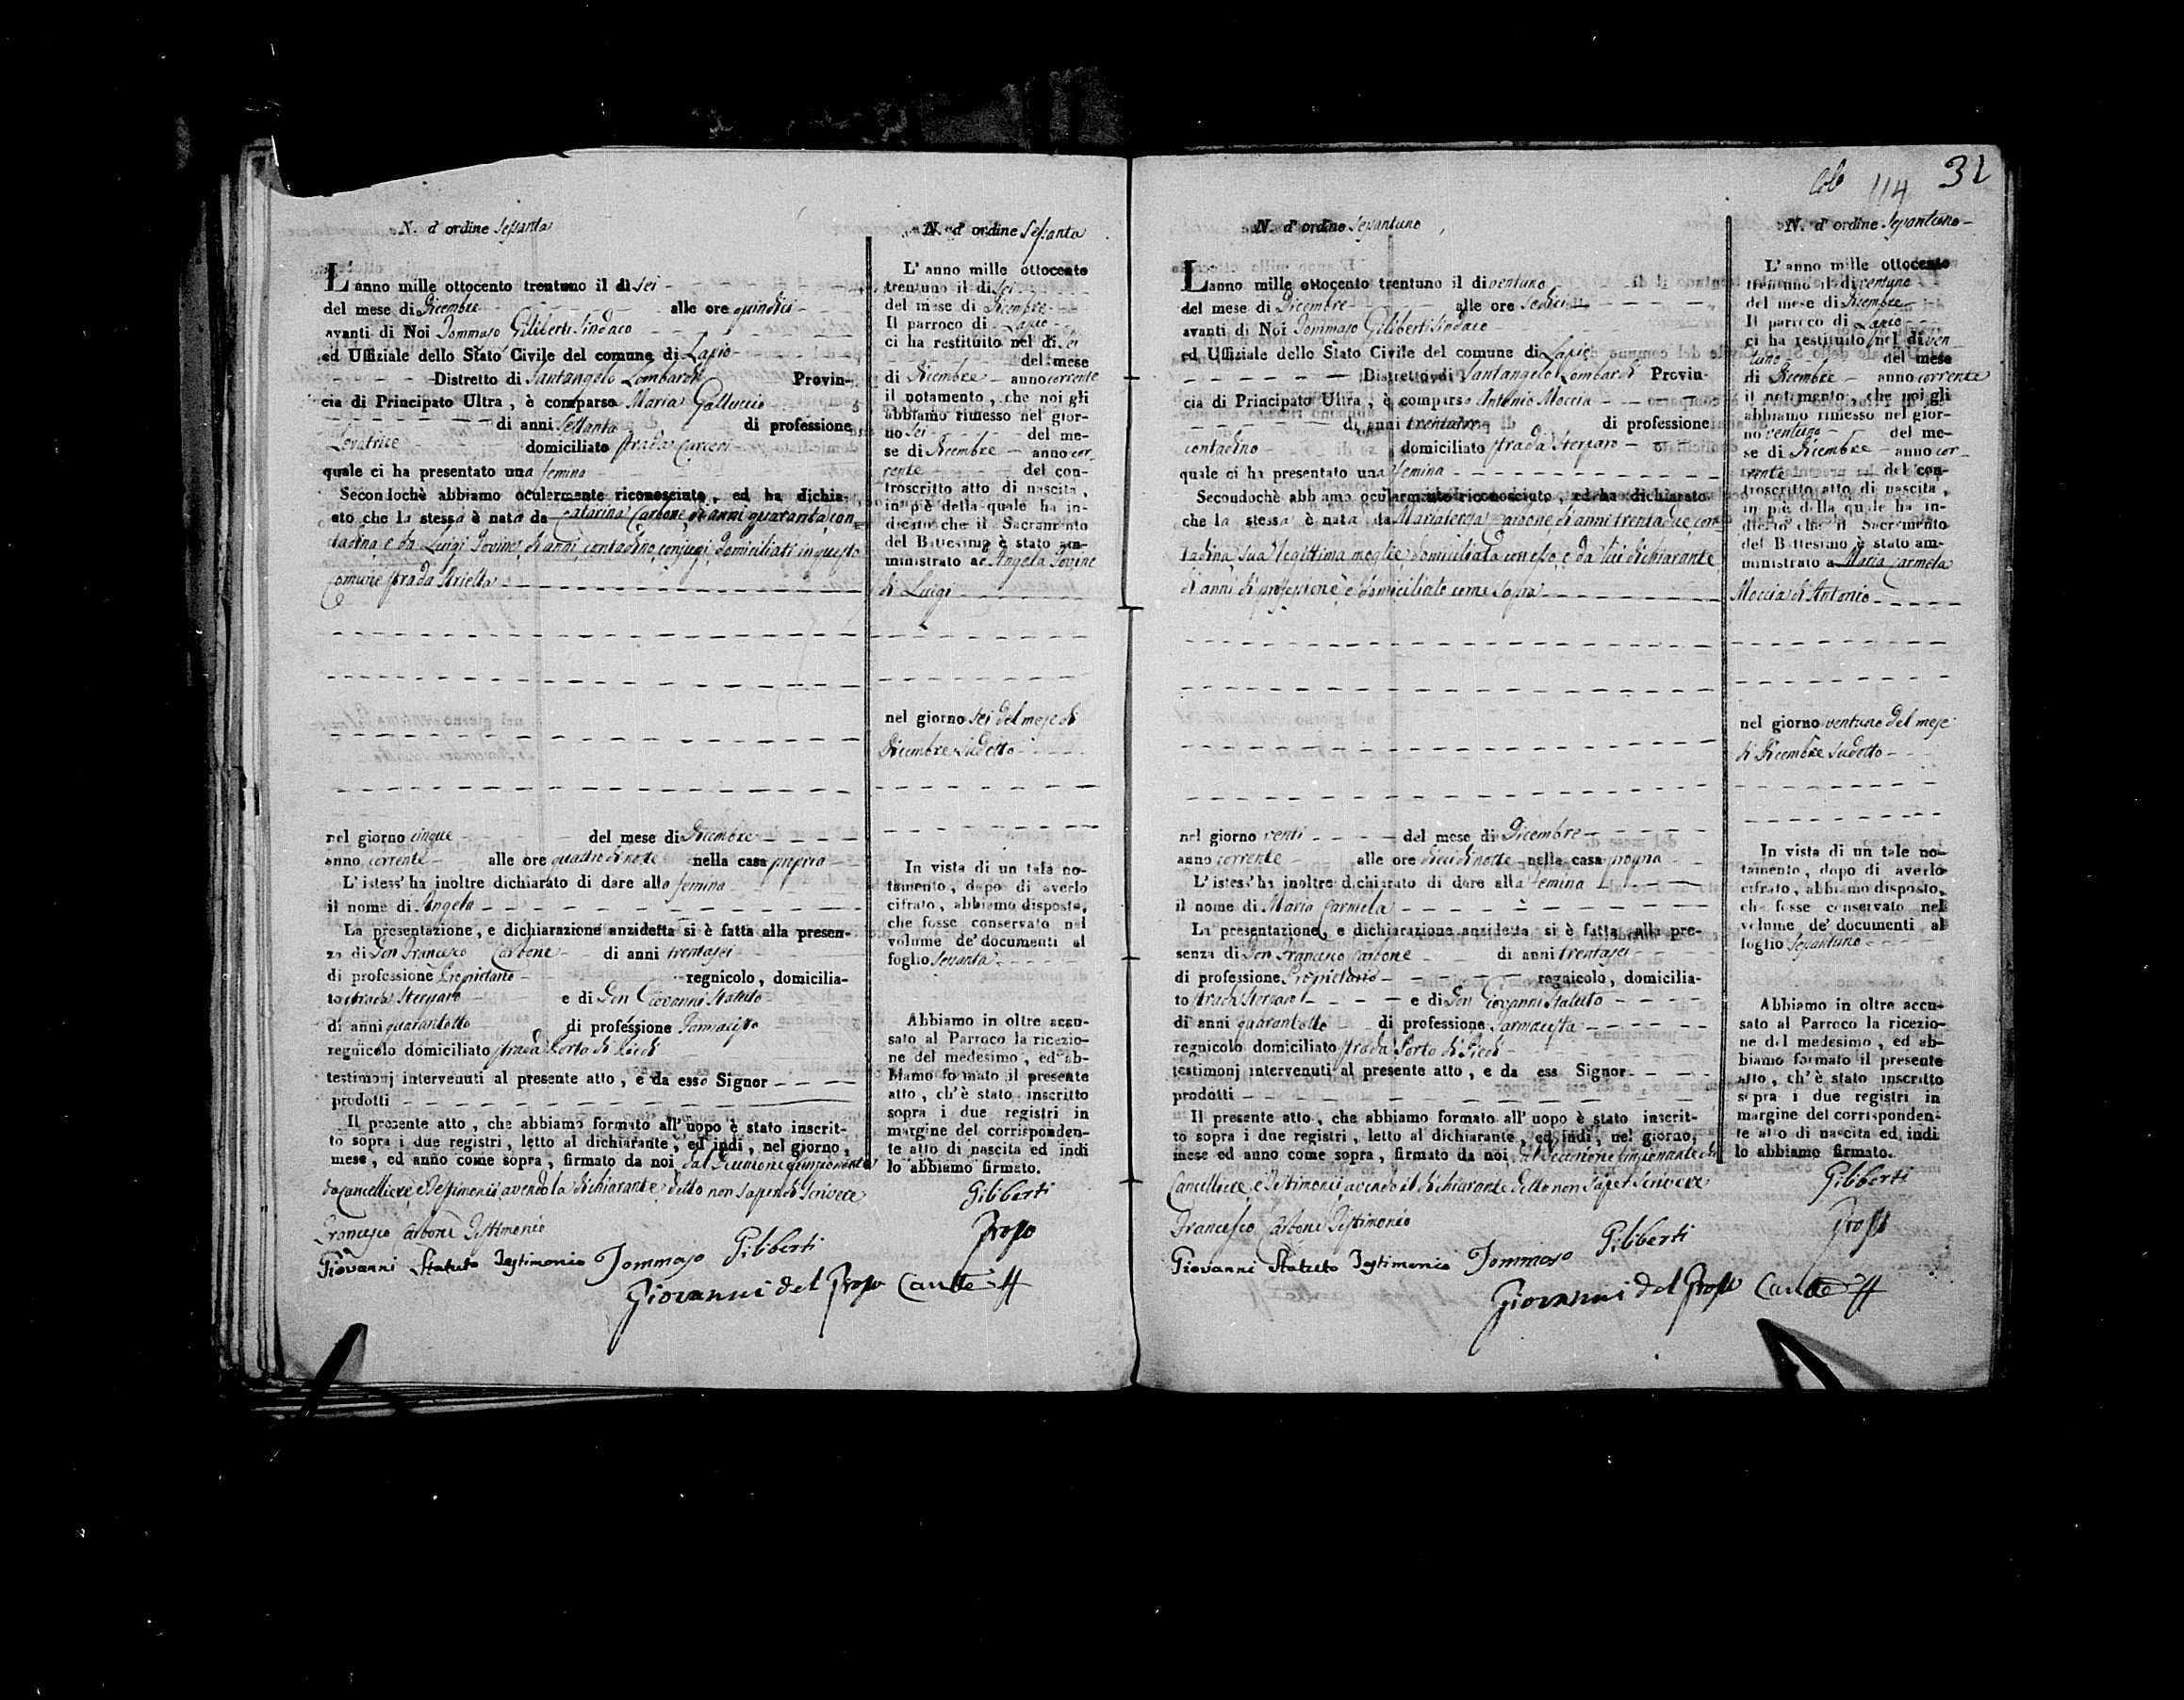 N. d' ordine Sessanta
L' anno mille ottocento trentuno il dì sei
del mese di Dicembre alle ore quindici
avanti di Noi Tommaso Giliberti Sindaco
ed Uffiziale dello Stato Civile del comune di Lapio
Distretto di Santangelo Lombardi Provin-
cia di Principato Ultra, è comparsa Maria Galluccio
di anni Settanta di professione
Levatrice domiciliato strada Carceri
quale ci ha presentato una femina
Secondochè abbiamo ocularmente riconosciuto, ed ha dichia-
ato che la stessa è nata da Catarina Carbone di anni quaranta con-
tadina e da Luigi Iovine di anni contadino conjugi domiciliati in questo
Comune strada Ariella
nel giorno cinque del mese di Dicembre
anno corrente alle ore quattro di notte nella casa propria
L' istess' ha inoltre dichiarato di dare alla femina
il nome di Angela
La presentazione, e dichiarazione anzidetta si è fatta alla presen-
za di Don Francesco Carbone di anni trentasei
di professione Proprietario regnicolo, domicilia-
to strada Sterparo e di Don Giovanni Statuto
di anni quarantotto di professione Farmacista
regnicolo domiciliato strada Porto di Piedi
testimonj intervenuti al presente atto, e da esso Signor
prodotti
Il presente atto, che abbiamo formato all' uopo è stato inscrit-
to sopra i due registri, letto al dichiarante, ed indi, nel giorno,
mese, ed anno come sopra, firmato da noi dal Decurione funzionante
da Cancelliere e Testimonii avendo la dichiarante detto non saper di scrivere
Francesco Carbone Testimonio
Giovanni Statuto Testimonio Tommaso Giliberti
Giovanni del Grosso Canc.e
N. d' ordine Sessanta
L' anno mille ottocento
trentuno il dì sei
del mese di Dicembre
Il parroco di Lapio
ci ha restituito nel dì sei
del mese
di Dicembre anno corrente
il notamento, che noi gli
abbiamo rimesso nel gior-
no sei del me-
se di Dicembre anno cor-
rente del con-
troscritto atto di nascita,
in piè della quale ha in-
dicato che il Sacramento
del Battesimo è stato am-
ministrato ad Angela Iovine
di Luigi
nel giorno sei del mese di
Dicembre sudetto
In vista di un tale no-
tamento, dopo di averlo
cifrato, abbiamo disposto,
che fosse conservato nel
volume de' documenti al
foglio sessanta
Abbiamo in oltre accu-
sato al Parroco la ricezio-
ne del medesimo, ed ab-
biamo formato il presente
atto, ch' è stato inscritto
sopra i due registri in
margine del corrisponden-
te atto di nascita ed indi
lo abbiamo firmato.
Giliberti
Grosso
114 31
N. d' ordine Sessantuno
L' anno mille ottocento trentuno il dì ventuno
del mese di Dicembre alle ore sedici
avanti di Noi Tommaso Giliberti Sindaco
ed Uffiziale dello Stato Civile del comune di Lapio
Distretto di Santangelo Lombardi Provin-
cia di Principato Ultra, è comparso Antonio Moccia
di anni trentatre di professione
contadino domiciliato strada Sterparo
quale ci ha presentato una femina
Secondochè abbiamo ocularmente riconosciuto, ed ha dichiarato
che la stessa è nata da Mariateresa Carbone di anni trentadue con-
tadina sua legittima moglie domiciliata con esso e da lui dichiarante
di anni di professione e domiciliato come sopra
nel giorno venti del mese di Dicembre
anno corrente alle ore dieci di notte nella casa propria
L' istess' ha inoltre dichiarato di dare alla femina
il nome di Maria Carmela
La presentazione, e dichiarazione anzidetta si è fatta alla pre-
senza di Don Francesco Carbone di anni trentasei
di professione Proprietario regnicolo, domicilia-
to strada Sterparo e di Don Giovanni Statuto
di anni quarantotto di professione Farmacista
regnicolo domiciliato strada Porto di Piedi
testimonj intervenuti al presente atto, e da ess Signor
prodotti
Il presente atto, che abbiamo formato all' uopo è stato inscrit-
to sopra i due registri, letto al dichiarante, ed indi, nel giorno,
mese ed anno come sopra, firmato da noi dal Decurione funzionante da
Cancelliere e Testimonii avendo il dichiarante detto non saper scrivere
Francesco Carbone Testimonio
Giovanni Statuto Testimonio Tommaso Giliberti
Giovanni del Grosso Canc.e
N. d' ordine Sessantuno
L' anno mille ottocento
trentuno il dì ventuno
del mese di Dicembre
Il parroco di Lapio
ci ha restituito nel dì ven-
tuno del mese
di Dicembre anno corrente
il notamento, che noi gli
abbiamo rimesso nel gior-
no ventuno del me-
se di Dicembre anno cor-
rente del con-
troscritto atto di nascita,
in piè della quale ha in-
dicato che il Sacramento
del Battesimo è stato am-
ministrato a Maria Carmela
Moccia di Antonio
nel giorno ventuno del mese
di Dicembre sudetto
In vista di un tale no-
tamento, dopo di averlo
cifrato, abbiamo disposto,
che fosse conservato nel
volume de' documenti al
foglio sessantuno
Abbiamo in oltre accu-
sato al Parroco la ricezio-
ne del medesimo, ed ab-
biamo formato il presente
atto, ch' è stato inscritto
sopra i due registri in
margine del corrisponden-
te atto di nascita ed indi
lo abbiamo firmato.
Giliberti
Grosso